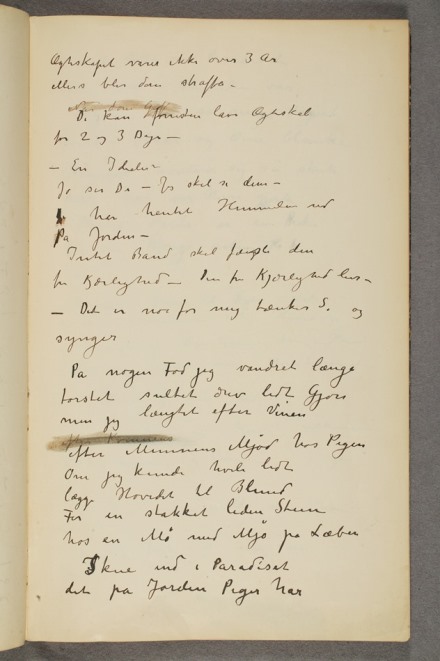 Ægteskapet varer ikke over 3 År
ellers blir dem straffa –
De kan foruden lave Ægteskab
for 2 og 3 Dage –
– En Idealist
Jo ser De – Jeg skal si dem –
har hentet Himmelen ned
På Jorden –
Intet Bånd skal fængsle den
fri Kjærlighed – Den fri Kjærlighed lever –
– Det er noe for mig tænker S. og
synger
På nøgen Fod jeg vandret længe
tørstet sultet
men jeg længtet efter Vinen
efter Minnenes Mjød hos Pigen
Om jeg kunde hvile lidt
lægge Hovedet til Blund
For en stakket liden Stund
hos en Mø med Mjø på Læben
Skue ind i Paradiset
det på Jorden Piger har